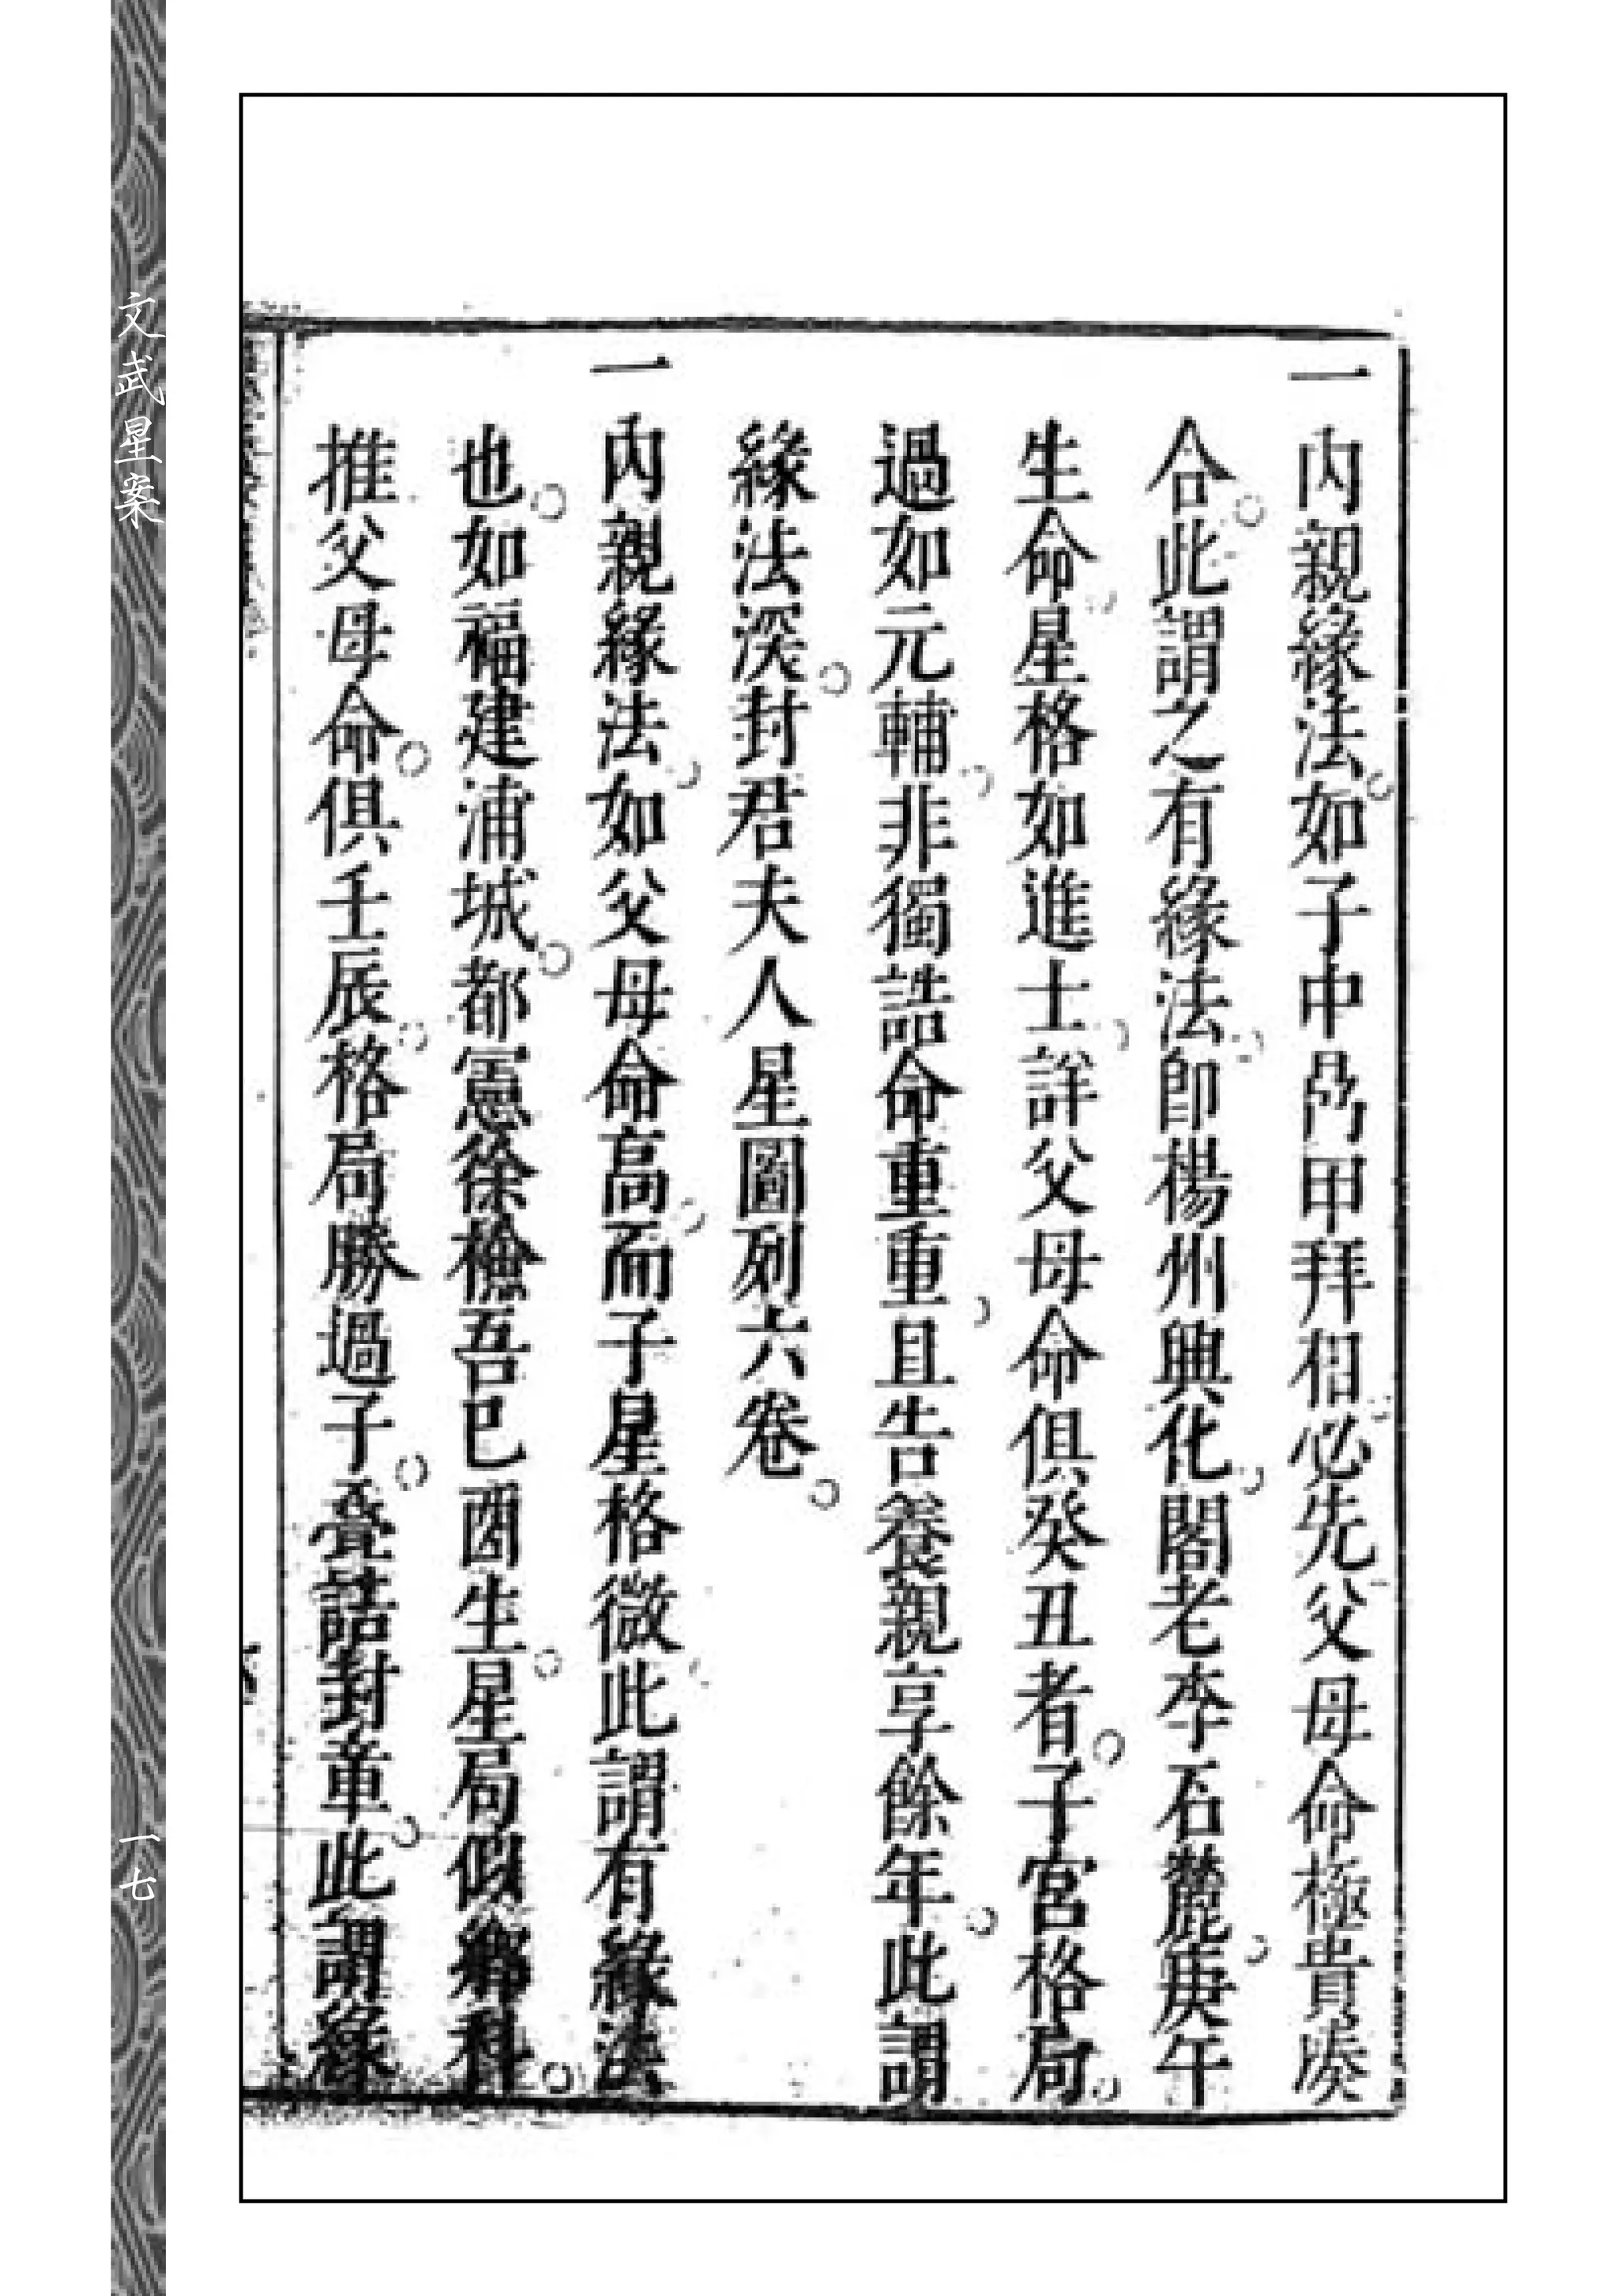 一內親緣法如子中咼甲拜相必先父母命極貴湊
合此謂之有緣法即楊州興化閣老李石麓庚午
生命星格如進士詳父母命俱癸丑者子宮格局
過如元輔非獨誥命重重且告養親享餘年此謂
緣法深封君夫人星圖列六卷
一內親緣法如父母命高而子星格微此謂有緣法
也如福建浦城都憲徐檢吾巳酉生星局似鄉科
推父母命俱壬辰格局勝過子疊誥封章此謂緣
文武星案
一七